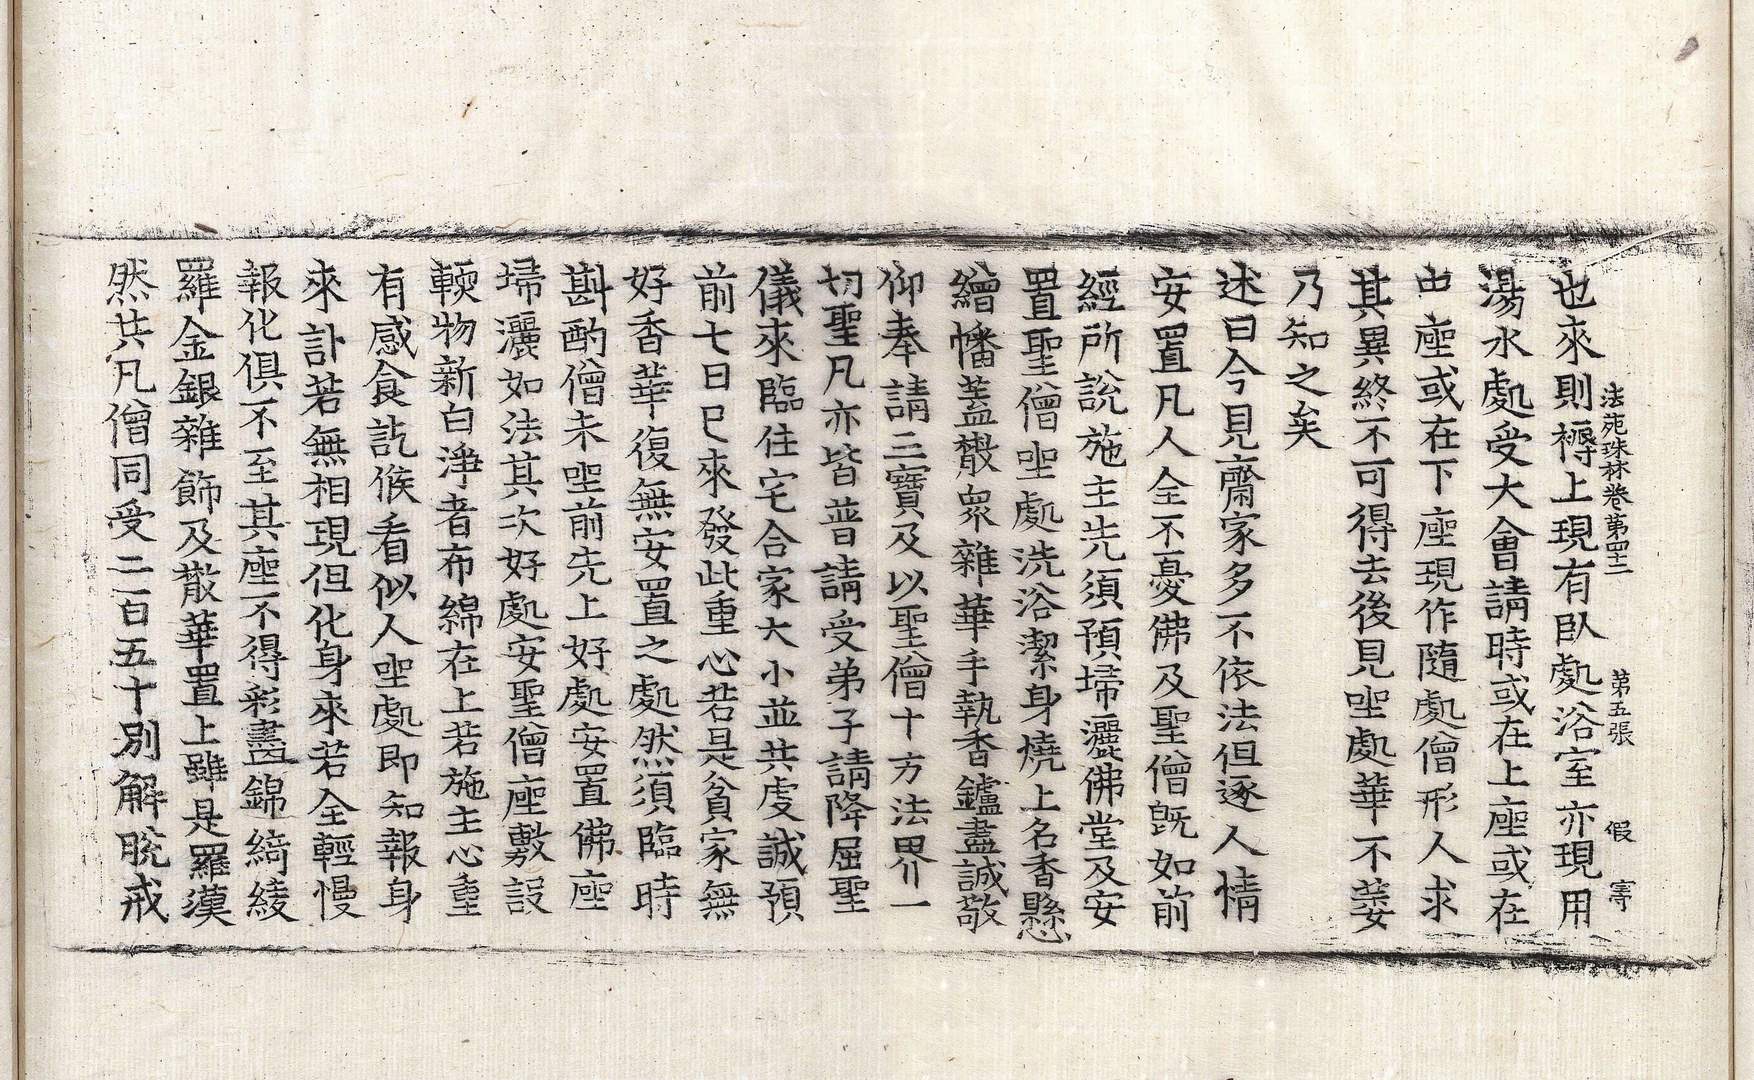 法苑珠林卷第四十二 第五張 假 寗
也來則褥上現有臥處浴室亦現用
湯水處受大會請時或在上座或在
中座或在下座現作隨處僧形人求
其異終不可得去後見坐處華不萎
乃知之矣
述曰今見齋家多不依法但逐人情
安置凡人全不憂佛及聖僧旣如前
經所說施主先須預埽灑佛堂及安
置聖僧坐處洗浴潔身燒上名香懸
繒幡蓋散衆雜華手執香鑪盡誠敬
仰奉請三寶及以聖僧十方法界一
切聖凡亦皆普請受弟子請降屈聖
儀來臨住宅合家大小並共虔誠預
前七日已來發此重心若是貧家無
好香華復無安置之處然須臨時
斟酌僧未坐前先上好處安置佛座
埽灑如法其次好處安聖僧座敷設
輭物新白淨者布綿在上若施主心重
有感食訖候看似人坐處即知報身
來訃若無相現但化身來若全輕慢
報化俱不至其座不得彩畫錦綺綾
羅金銀雜飾及散華置上雖是羅漢
然共凡僧同受二百五十別解脫戒